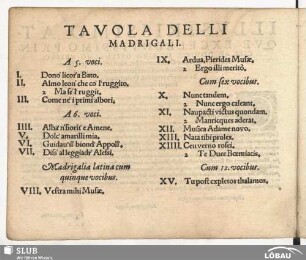 TAVOLA DELLI
MADRIGALI.
A 5. voci.
I. Dono licor'a Bato,
II. Almo leon' che co'l ruggito,
2 Ma se'l ruggir,
III. Come ne i primi albori,
A 6. voci.
IIII. Alba
V. Dolc' amarilli mia,
VI. Guidav' il biond' Apoll',
VII. Diss' al leggiadr' Alessi,
Madrigalia latina cum
quinque vocibus.
VIII. Vestra mihi Musæ,
IX. Ardua, Pierides Musæ,
2 Ergo illi meritò,
Cum sex vocibus.
X. Nunc tandem,
2 Nunc ergo
XI. Naupacti victus quondam,
2 Manricques aderat,
XII. Musica Adame novo,
XIII. Nata tibi proles,
XIIII. Ceu verno rosei,
2 Te Duce
Cum 12. vocibus.
XV. Tu post expletos thalamos,
SLUB
LÖBAU